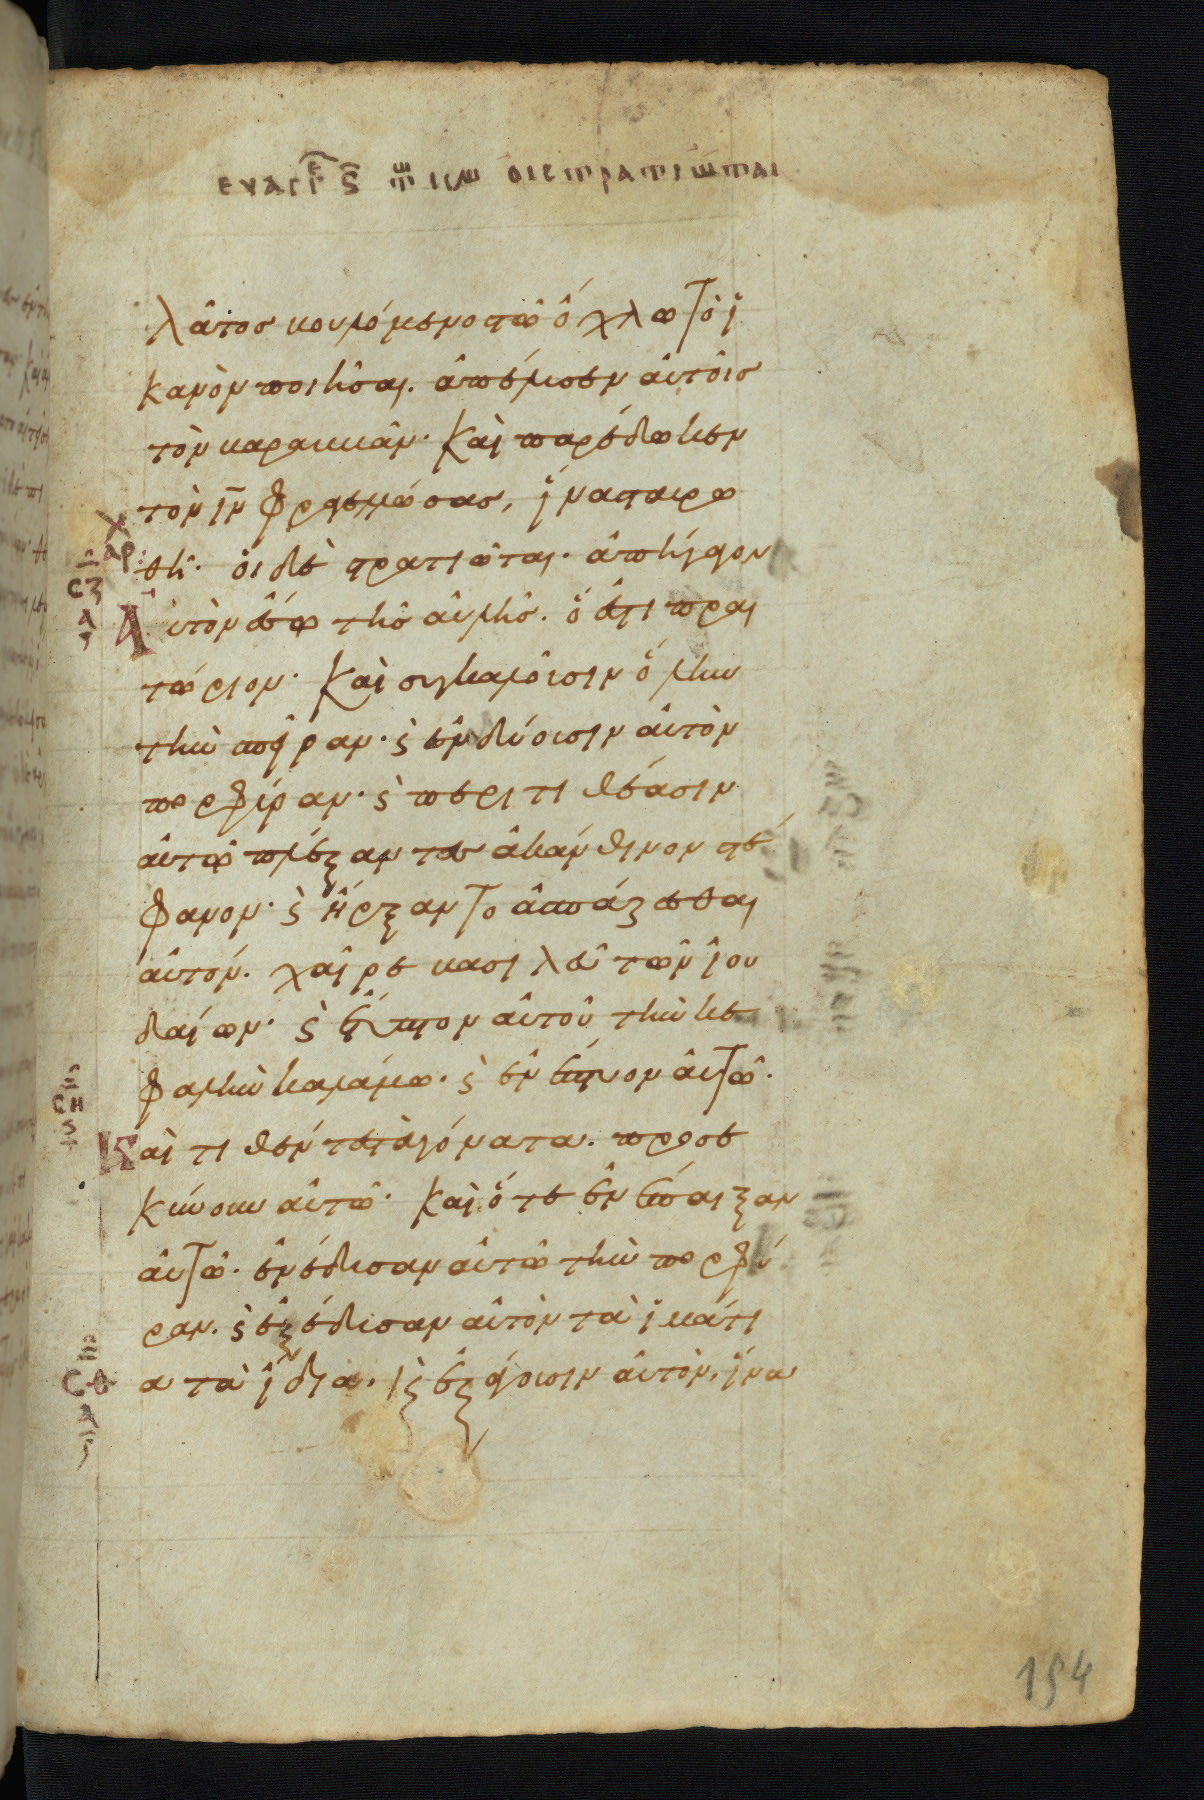 ευαγγε ϛ τω και οι στρατιωται
λᾶτος βουλόμενος τῶ ὄχλω τὸ ἱ
κανὸν ποιῆσαι. ἀπέλυσεν αὐτοῖς
τὸν βαραββᾶν. καὶ παρέδωκεν
τὸν ιν φραγελλώσας, ἵνα σταυρω
θῆ. οἱ δὲ στρατιῶται. ἀπήγαγον
Αυτὸν ἔσω τῆς αὐλῆς. ὅ ἐστι πραι
τώριον. καὶ συγκαλοῦσιν ὅλην
τὴν σπεῖραν. ϛ ἐνδύουσιν αὐτὸν
πορφύραν. ϛ περιτιθέασιν
αὐτῶ πλέξαντες ἀκάνθινον στέ
φανον. ϛ ἤρξαντο ἀσπάζεσθαι
αὐτόν. χαῖρε βασιλεῦ τῶν ἰου
δαίων. ϛ ἔτυπτον αὐτοῦ τὴν κε
φαλὴν καλάμω. ϛ ἐνέπτυον αὐτῶ.
Και τιθέντες τὰ γόνατα. προσε
κύνουν αὐτῶ. καὶ ὅτε ἐνέπαιξαν
αὐτῶ. ἐνέδυσαν αὐτῶ τὴν πορφύ
ραν. ϛ ἐξέδυσαν αὐτὸν τὰ ἱμάτι
α τὰ ἴδια. ϛ ἐξάγουσιν αὐτὸν, ἵνα
αρ:
σζ
α
ση
ς
σθ
α
154